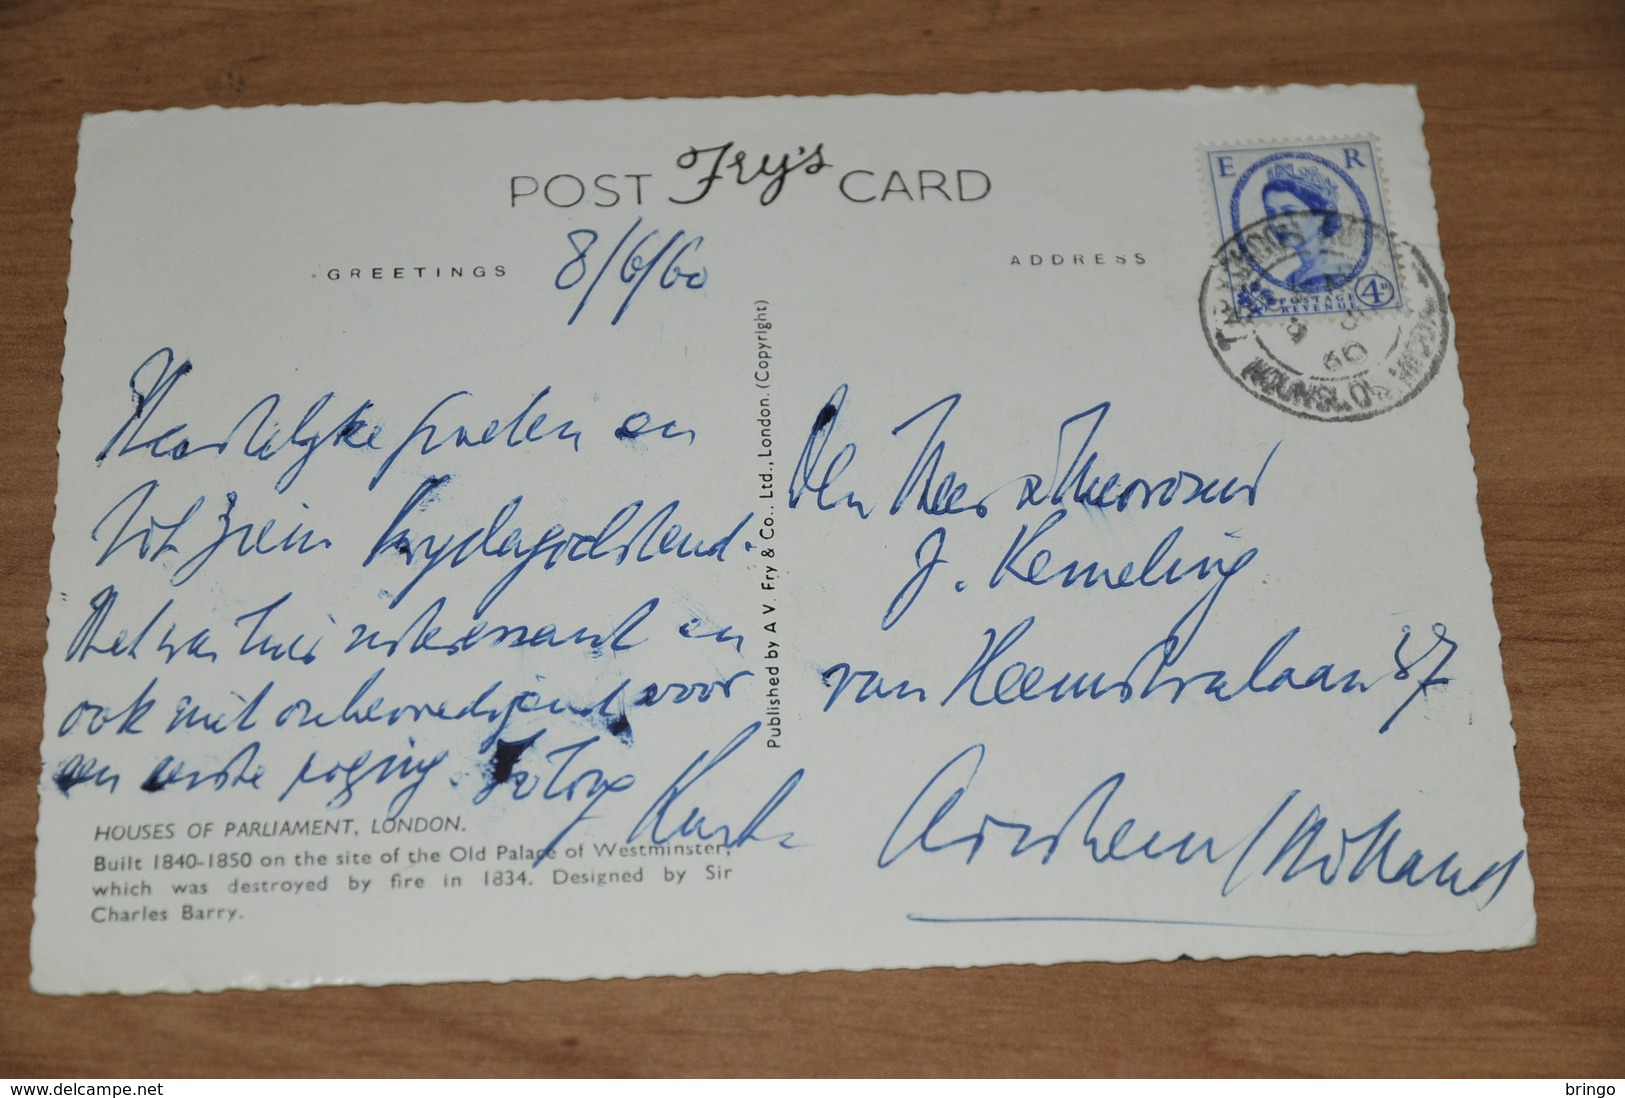 POST Fry's CARD
GREETINGS
8/6/60
ADDRESS
E R
POSTAGE
REVENUE
4D
HOUNSLOW
60
Hartelijke groeten en
tot ziens
Het was hier interessant en
ook niet onbevredigend voor
een eerste poging.
Den Heer & Mevrouw
J. Kemeling
van Heemstralaan 87
Arnhem/Holland
Published by A. V. Fry & Co., Ltd., London. (Copyright)
HOUSES OF PARLIAMENT, LONDON.
Built 1840-1850 on the site of the Old Palace of Westminster,
which was destroyed by fire in 1834. Designed by Sir
Charles Barry.
www.delcampe.net
bringo